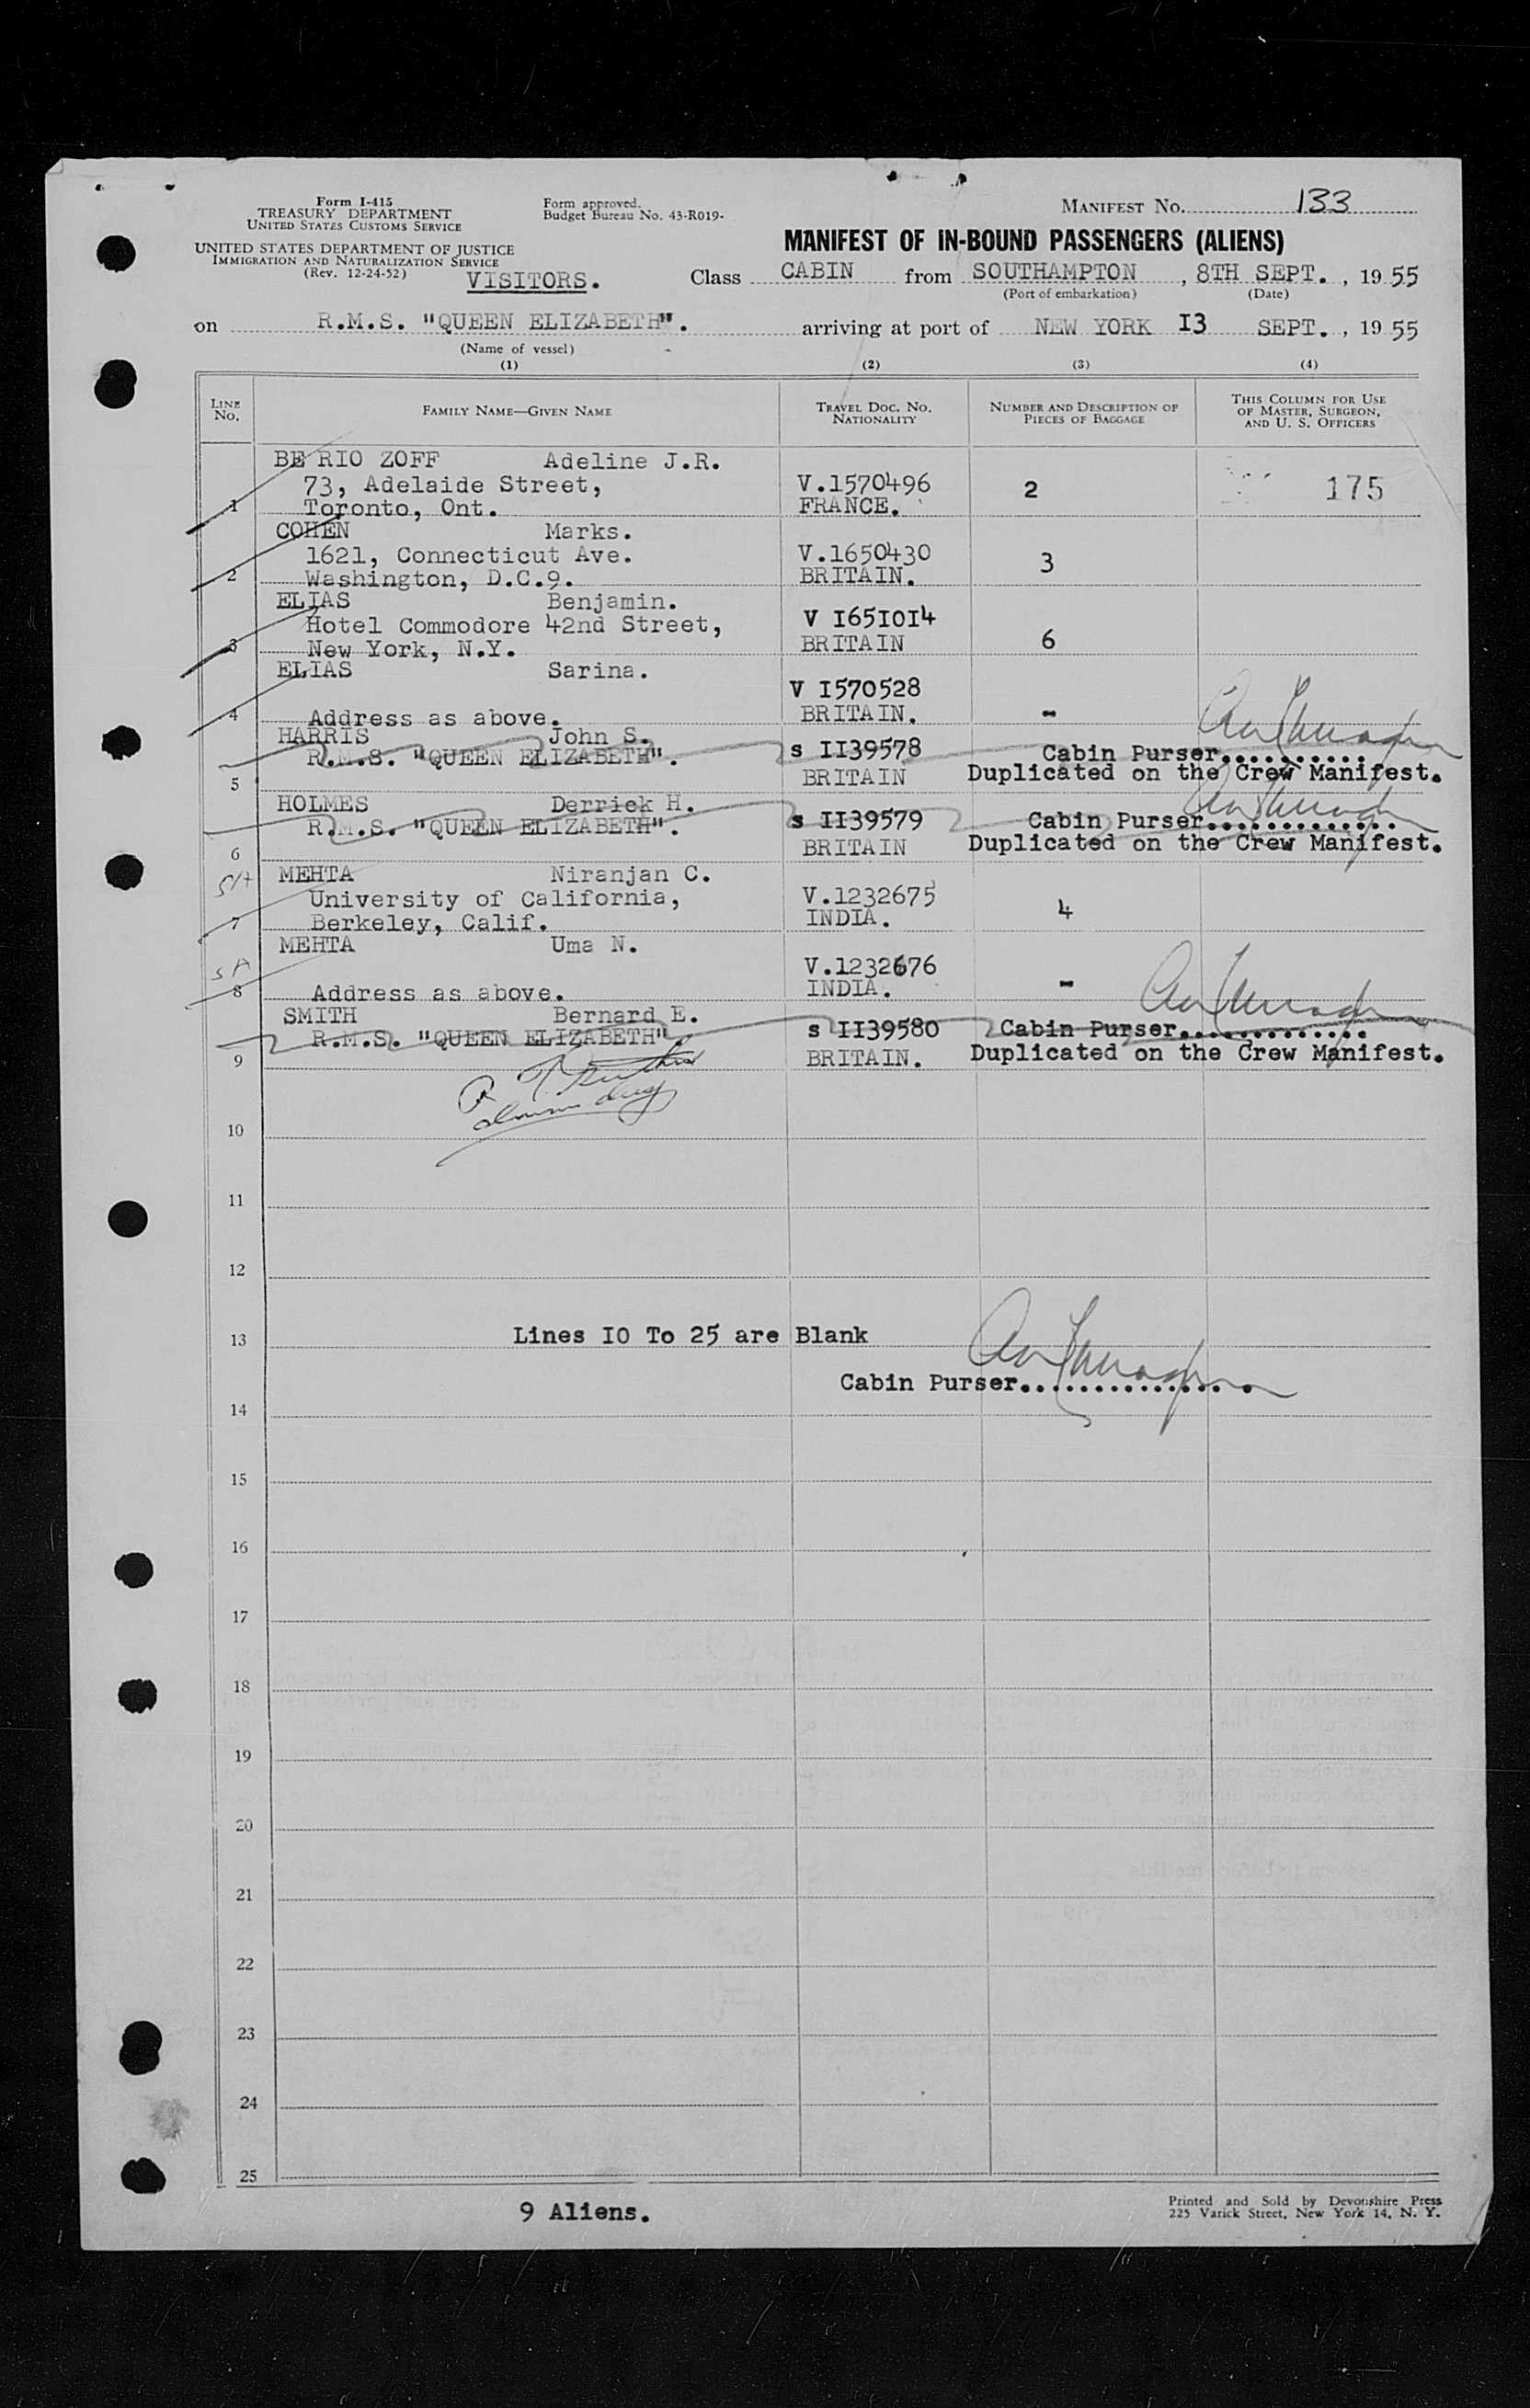 Form I-415
TREASURY DEPARTMENT
UNITED STATES CUSTOMS SERVICE
UNITED STATES DEPARTMENT OF JUSTICE
IMMIGRATION AND NATURALIZATION SERVICE
(Rev. 12-24-52)
VISITORS.
Form approved.
Budget Bureau No. 43-R019-
MANIFEST No. 133
MANIFEST OF IN-BOUND PASSENGERS (ALIENS)
Class CABIN from SOUTHAMPTON, 8TH SEPT., 1955
(Port of embarkation) (Date)
on R.M.S. "QUEEN ELIZABETH". arriving at port of NEW YORK I3 SEPT., 1955
(Name of vessel)
(1) (2) (3) (4)
LINE No. FAMILY NAME—GIVEN NAME TRAVEL DOC. NO. NATIONALITY NUMBER AND DESCRIPTION OF PIECES OF BAGGAGE THIS COLUMN FOR USE OF MASTER, SURGEON, AND U. S. OFFICERS
BE RIO ZOFF Adeline J.R.
73, Adelaide Street, V.1570496 2 175
1 Toronto, Ont. FRANCE.
COHEN Marks.
1621, Connecticut Ave. V.1650430 3
2 Washington, D.C.9. BRITAIN.
ELIAS Benjamin.
Hotel Commodore 42nd Street, V I65I0I4
3 New York, N.Y. BRITAIN 6
ELIAS Sarina.
V I570528
4 Address as above. BRITAIN. -
HARRIS John S.
R.M.S. "QUEEN ELIZABETH". s II39578 Cabin Purser..........
5 BRITAIN Duplicated on the Crew Manifest.
HOLMES Derrick H.
R.M.S. "QUEEN ELIZABETH". s II39579 Cabin Purser.............
6 BRITAIN Duplicated on the Crew Manifest.
MEHTA Niranjan C.
University of California, V.1232675 4
7 Berkeley, Calif. INDIA.
MEHTA Uma N.
V.1232676
8 Address as above. INDIA. -
SMITH Bernard E.
R.M.S. "QUEEN ELIZABETH". s II39580 Cabin Purser.............
9 BRITAIN. Duplicated on the Crew Manifest.
10
11
12
13 Lines IO To 25 are Blank
Cabin Purser................
14
15
16
17
18
19
20
21
22
23
24
25
9 Aliens.
Printed and Sold by Devonshire Press
225 Varick Street, New York 14, N. Y.